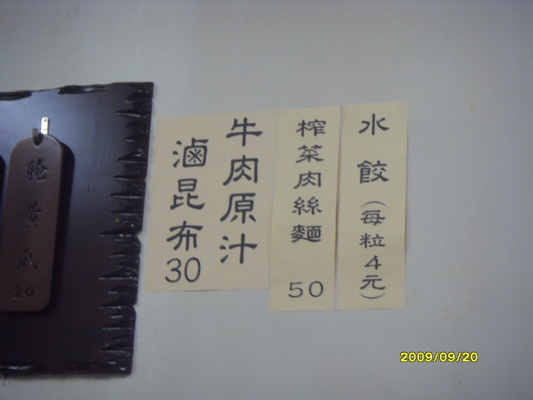 水餃(每粒4元)
榨菜肉絲麵
50
牛肉原汁
滷昆布30
醃黃瓜
20
2009/09/20